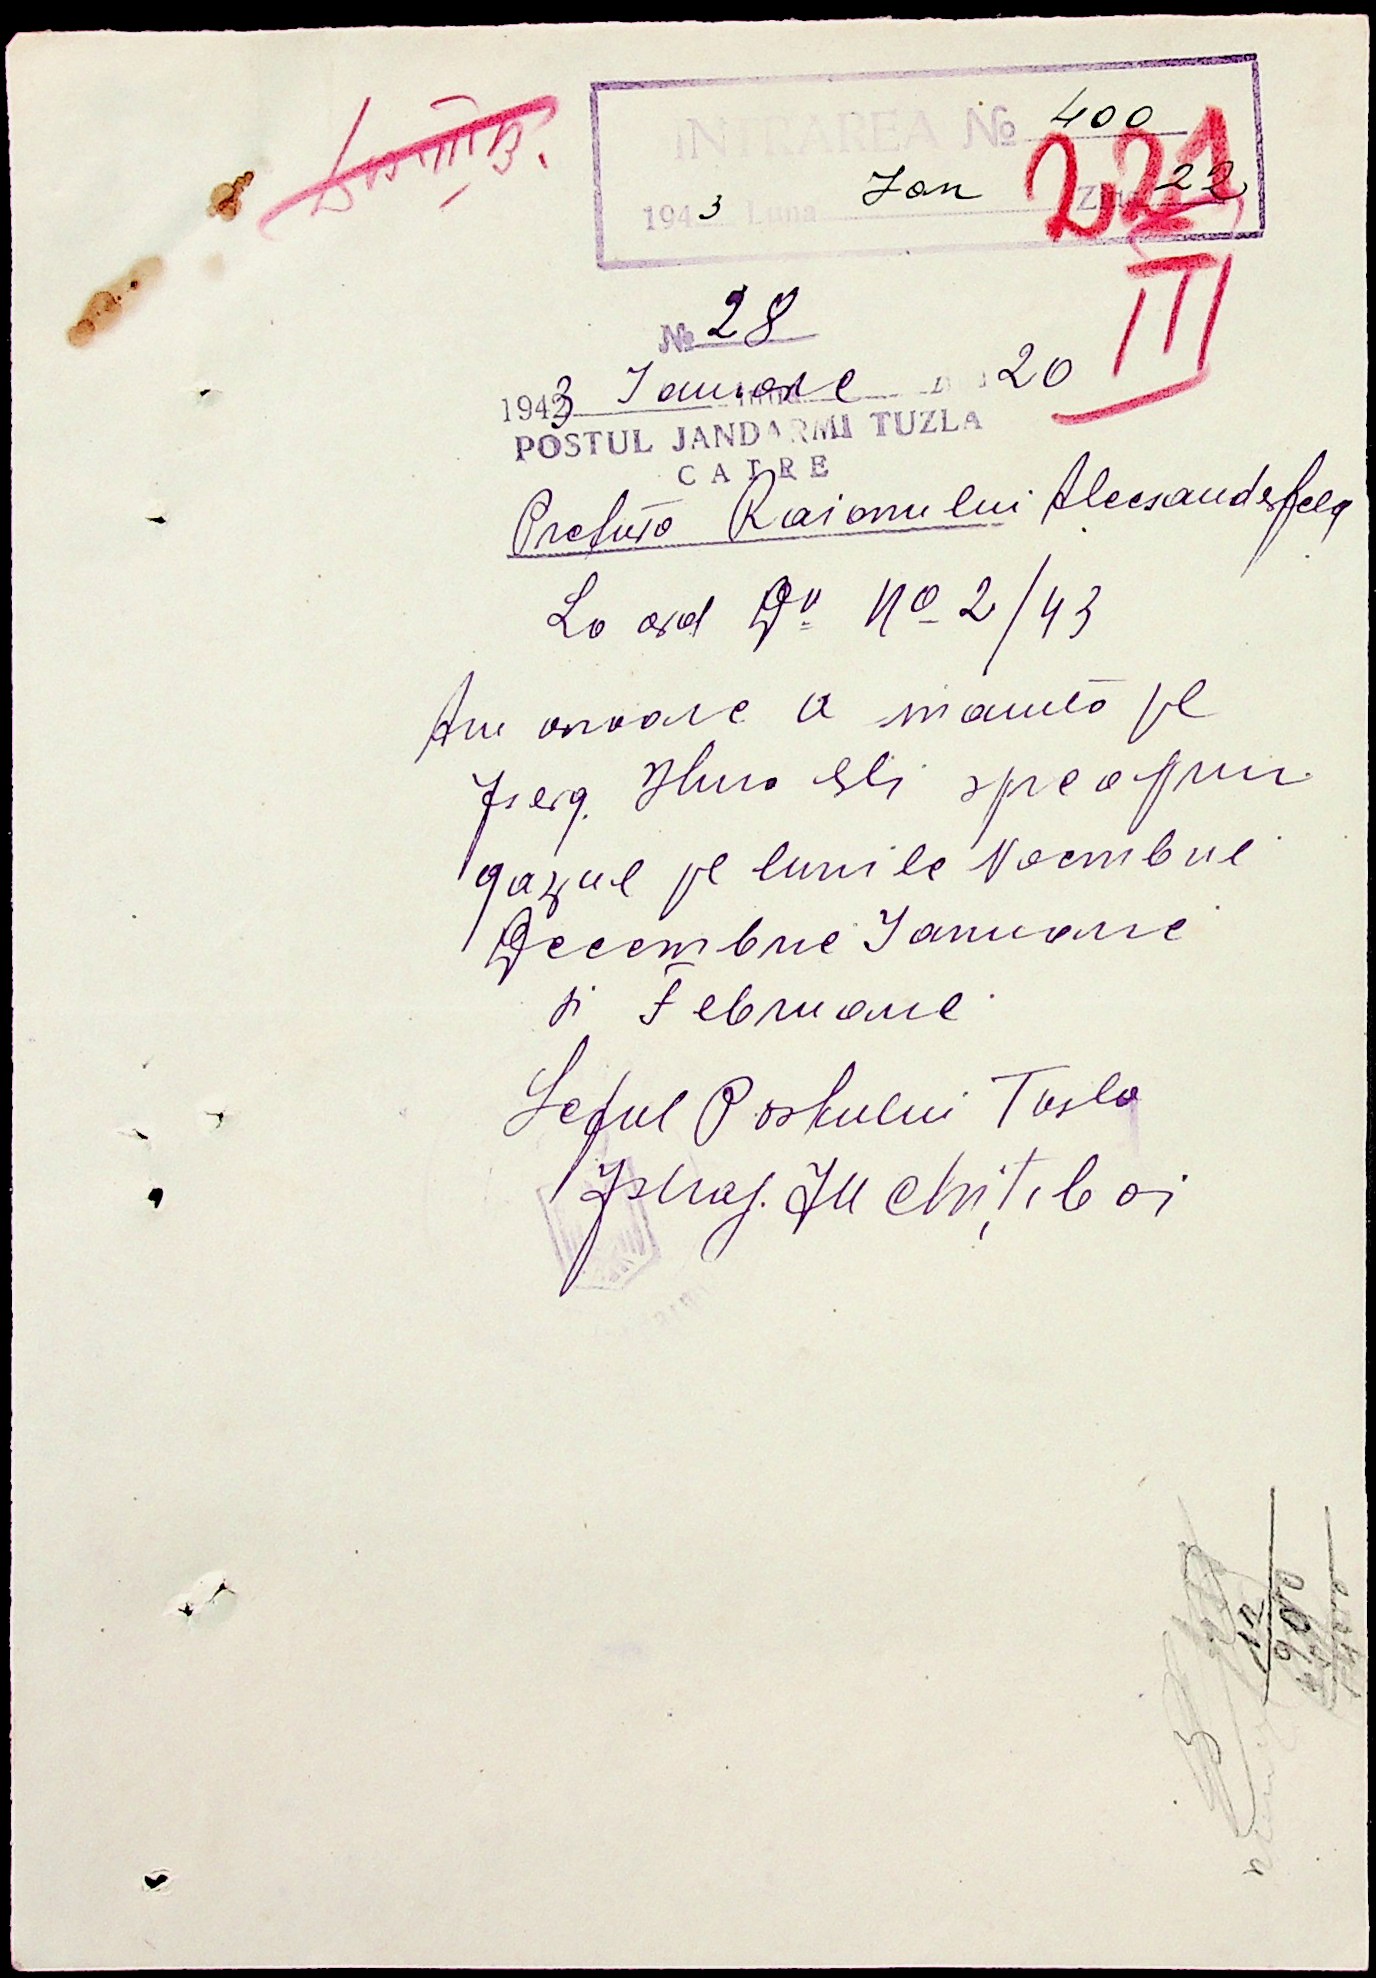 INTRAREA No 400
221
1943 Luna Ian Ziua 22
III
No 28
1943 Ianuarie luna 20
POSTUL JANDARMI TUZLA
CATRE
Pretura Raionului Alecsanderfeld
La ord Dv No 2/43
Am onoare a inainta pe
spre a primi
gazul pe lunile Noembrie
Decembrie Ianuarie
si Februarie
Seful Postului Tusla
Chitiboi